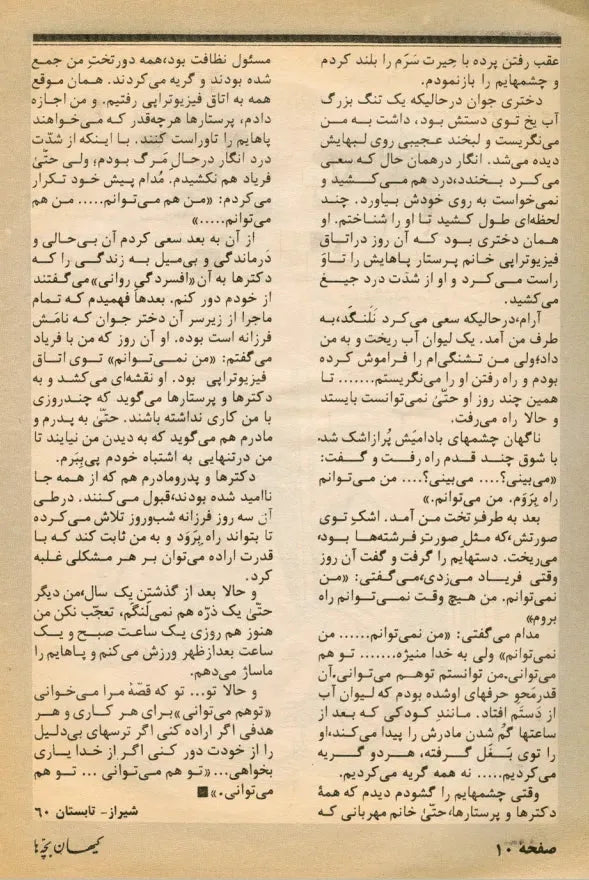 عقب رفتن پرده با حیرت سَرَم را بلند کردم
و چشمهایم را بازنمودم.
دختری جوان درحالیکه یک تنگ بزرگ
آب یخ توی دستش بود، داشت به من
می‌نگریست و لبخند عجیبی روی لبهایش
دیده می‌شد. انگار درهمان حال که سعی
می‌کرد بخندد،درد هم می‌کشید و
نمی‌خواست به روی خودش بیاورد. چند
لحظه‌ای طول کشید تا او را شناختم. او
همان دختری بود که آن روز دراتاق
فیزیوتراپی خانم پرستار پاهایش را تاوَ
راست می‌کرد و او از شدت درد جیغ
می‌کشید.
آرام،درحالیکه سعی می‌کرد نَلَنگَد،به
طرف من آمد. یک لیوان آب ریخت و به من
داد؛ولی من تشنگی‌ام را فراموش کرده
بودم و راه رفتن او را می‌نگریستم....... تا
همین چند روز او حتّیٰ نمی‌توانست بایستد
و حالا راه می‌رفت.
ناگهان چشمهای بادامیَش پُرازاشک شد.
با شوق چند قدم راه رفت و گفت:
«می‌بینی؟.... می‌بینی؟.... من می‌توانم
راه بِرَوَم. من می‌توانم.»
بعد به طرفِ تخت من آمد. اشکِ توی
صورتش،که مثلِ صورتِ فرشته‌ها بود،
می‌ریخت. دستهایم را گرفت و گفت آن روز
وقتی فریاد می‌زدی،می‌گفتی: «من
نمی‌توانم. من هیچ وقت نمی‌توانم راه
بروم»
مدام می‌گفتی: «من نمی‌توانم...... من
نمی‌توانم» ولی به خدا منیژه....... تو هم
می‌توانی.من توانستم توهم می‌توانی.آن
قدرمَحوِ حرفهای اوشده بودم که لیوان آب
از دَستَم افتاد. مانندِ کودکی که بعد از
ساعتها گُم شدن مادرش را پیدا می‌کند،او
را توی بَغَل گرفته، هردو گریه
می‌کردیم..... نه همه گریه می‌کردیم.
وقتی چشمهایم را گشودم دیدم که همهٔ
دکترها و پرستارها،حتّیٰ خانم مهربانی که
مسئول نظافت بود،همه دورتختِ من جمع
شده بودند و گریه می‌کردند. همان موقع
همه به اتاق فیزیوتراپی رفتیم. و من اجازه
دادم، پرستارها هرچه‌قدر که می‌خواهند
پاهایم را تاوراست کنند. با اینکه از شدّت
درد انگار درحالِ مَرگ بودم؛ ولی حتّیٰ
فریاد هم نکشیدم. مُدام پیش خود تکرار
می‌کردم: «من هم می‌توانم..... من هم
می‌توانم.....»
از آن به بعد سعی کردم آن بی‌حالی و
دَرماندگی و بی‌میل به زندگی را که
دکترها به آن«افسردگیِ روانی»می‌گفتند
از خودم دور کنم. بعدها فهمیدم که تمام
ماجرا از زیرسر آن دختر جوان که نامَش
فرزانه است بوده. او آن روز که من با فریاد
می‌گفتم: «من نمی‌توانم» توی اتاق
فیزیوتراپی بود. او نقشه‌ای می‌کشد و به
دکترها و پرستارها می‌گوید که چندروزی
با من کاری نداشته باشند. حتّیٰ به پدرم و
مادرم هم می‌گوید که به دیدن من نیایند تا
من درتنهایی به اشتباه خودم پِی‌ببَرم.
دکترها و پدرومادرم هم که از همه جا
ناامید شده بودند،قبول می‌کنند. درطی
آن سه روز فرزانه شب‌وروز تلاش می‌کرده
تا بتواند راه بِرَوَد و به من ثابت کند که با
قدرت اراده می‌توان بر هر مشکلی غلبه
کرد.
و حالا بعد از گذشتنِ یک سال،من دیگر
حتّیٰ یک ذرّه هم نمی‌لَنگَم، تعجّب نکن من
هنوز هم روزی یک ساعت صبح و یک
ساعت بعدازظهر ورزش می‌کنم و پاهایم را
ماساژ می‌دهم.
و حالا تو... تو که قصّهٔ مرا می‌خوانی
«توهم می‌توانی»برای هر کاری و هر
هدفی اگر اراده کنی اگر ترسهای بی‌دلیل
را از خودت دور کنی اگر از خدا یاری
بخواهی...«تو هم می‌توانی ... تو هم
می‌توانی.»
شیراز- تابستان ۶۰
صفحه ۱۰
کیهان بچّه‌ها